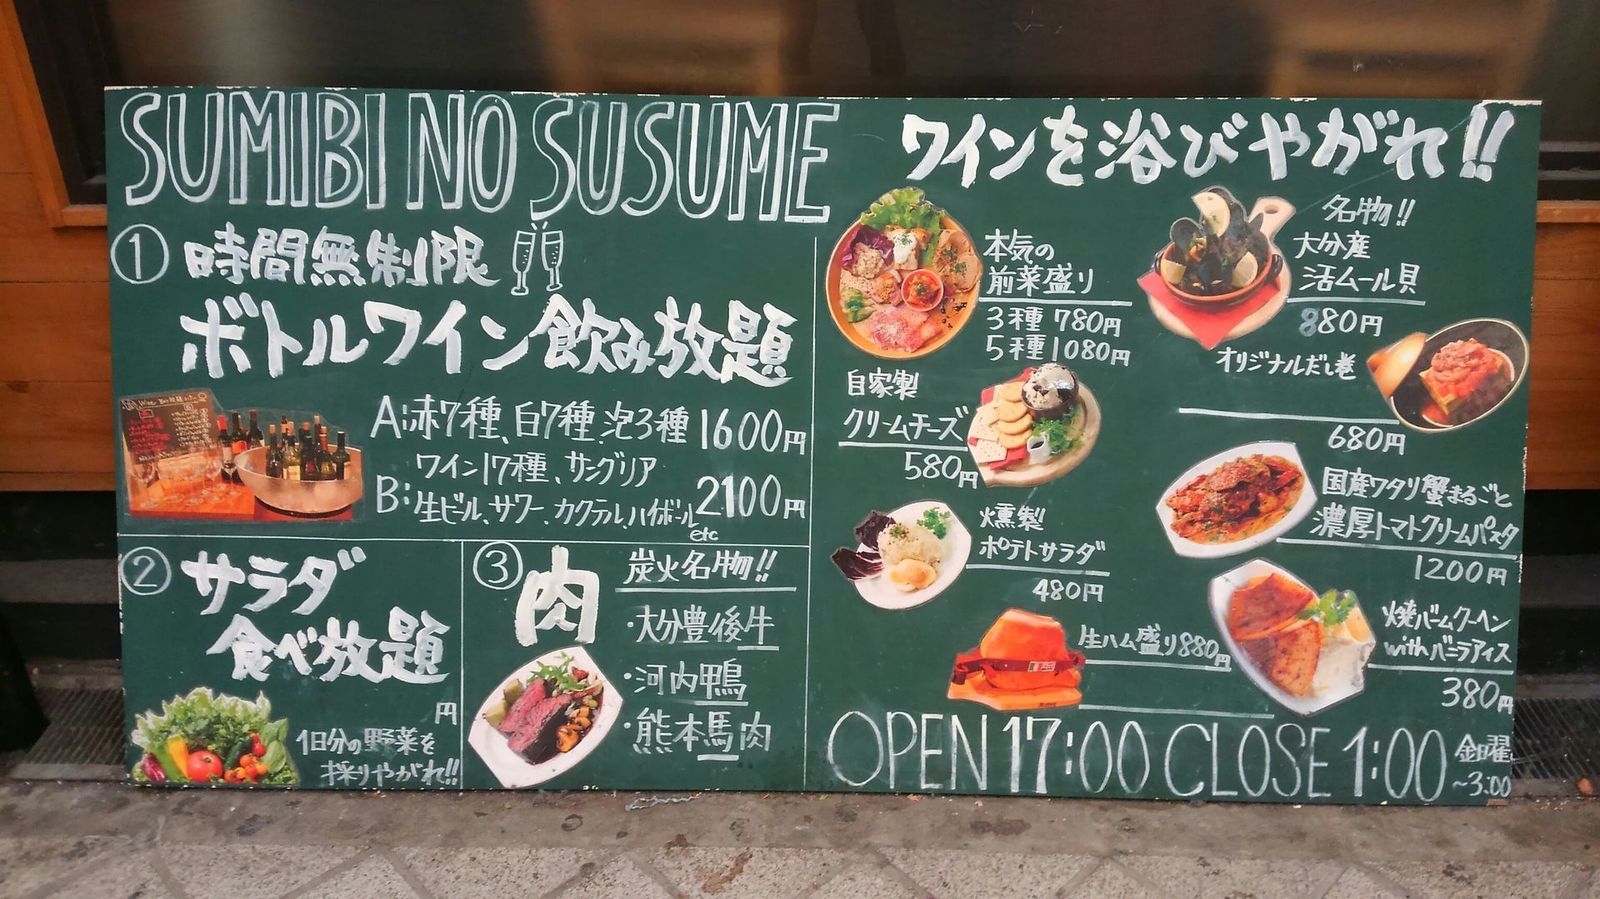 SUMIBI NO SUSUME
① 時間無制限
ボトルワイン飲み放題
A:赤7種、白7種、泡3種 1600円
ワイン17種、サングリア
B:生ビール、サワー、カクテル、ハイボール 2100円
etc
② サラダ
食べ放題
円
1日分の野菜を
採りやがれ!!
③ 肉
炭火名物!!
・大分豊後牛
・河内鴨
・熊本馬肉
ワインを浴びやがれ!!
本気の
前菜盛り
3種 780円
5種 1080円
自家製
クリームチーズ
580円
燻製
ポテトサラダ
480円
生ハム盛り880円
名物!!
大分産
活ムール貝
880円
オリジナルだし巻
680円
国産ワタリ蟹まるごと
濃厚トマトクリームパスタ
1200円
焼バームクーヘン
withバニラアイス
380円
OPEN 17:00 CLOSE 1:00 金曜
~3:00